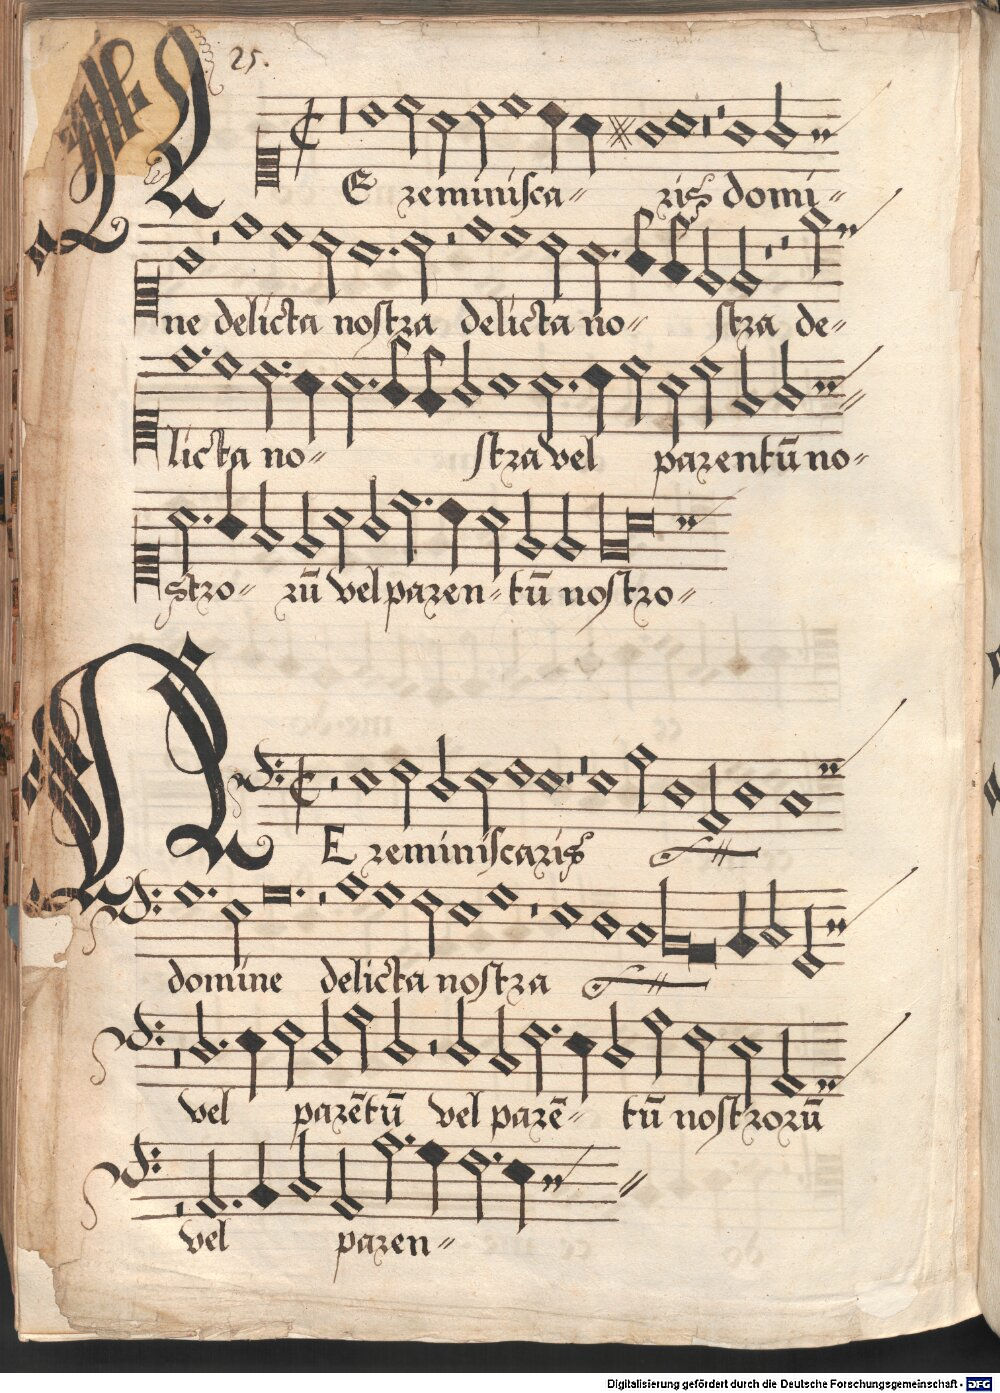 25.
NE reminisca- ris domi-
ne delicta nostra delicta no- stra de-
licta no- stra vel parentū no-
stro- rū vel paren- tū nostro-
NE reminiscaris
domine delicta nostra
vel parētū vel parē- tū nostrorū
vel paren-
Digitalisierung gefördert durch die Deutsche Forschungsgemeinschaft - DFG